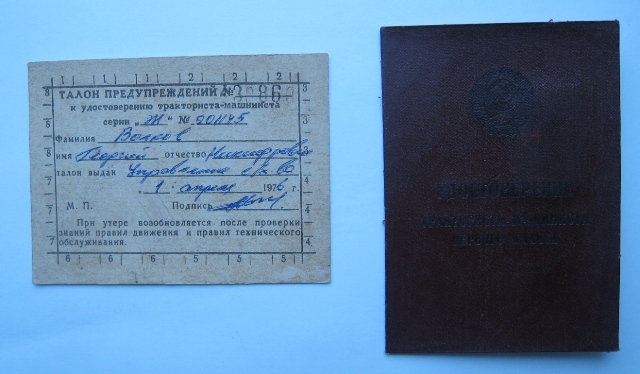 1 1 1 2 2 2
ТАЛОН ПРЕДУПРЕЖДЕНИЙ №
к удостоверению тракториста-машиниста
серии „Ж" № 201145
Фамилия Волков
имя Георгий отчество Никифрович
талон выдан Управление с/х-ва
„1" апреля 1976 г.
М. П. Подпись
При утере возобновляется после проверки
знаний правил движения и правил технического
обслуживания.
6 6 6 5 5 5
УДОСТОВЕРЕНИЕ